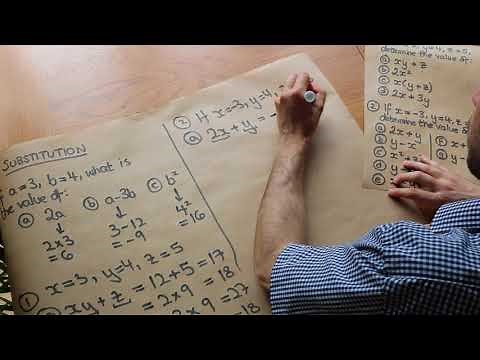 SUBSTITUTION
a=3, b=4, what is
the value of:
ⓐ 2a ⓑ a-3b ⓒ b²
↓ ↓ ↓
2×3 3-12 4²
=6 =-9 =16
① x=3, y=4, z=5
xy+z = 12+5 = 17
= 2×9 = 18
9 = 27
② If x=-3, y=4,
ⓐ 2x+y = -
y=4, z=5,
determine the value of:
ⓐ xy+z
ⓑ 2x²
ⓒ x(y+z)
ⓓ 2x+3y
② If x=-3, y=4, z
determine the value
ⓐ 2x+y
ⓑ y-x
ⓒ x²
ⓓ y
ⓔ